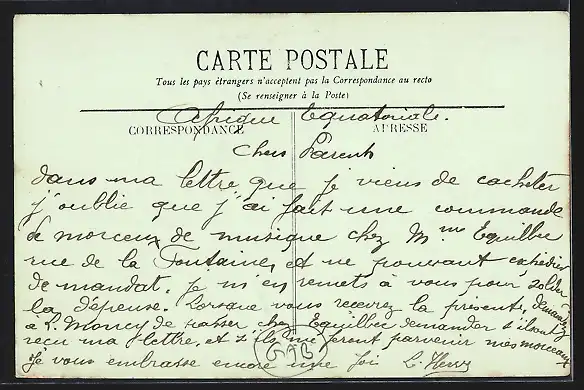 CARTE POSTALE
Tous les pays étrangers n'acceptent pas la Correspondance au recto
(Se renseigner à la Poste)
Afrique Equatoriale.
CORRESPONDANCE ADRESSE
Chers Parents
dans ma lettre que je viens de cacheter
j'oublie que j'ai fait une commande
de morceux de musique chez Mme Equilbec
rue de la Fontaine, et ne pouvant expédier
de mandat, je m'en remets à vous pour solder
la dépense. Lorsque vous recevrez la présente, demandez
à L. Moncy de passer chez Equilbec demander s'ils ont
reçu ma lettre, et s'ils me feront parvenir mes morceaux
Je vous embrasse encore une foi L. Henry